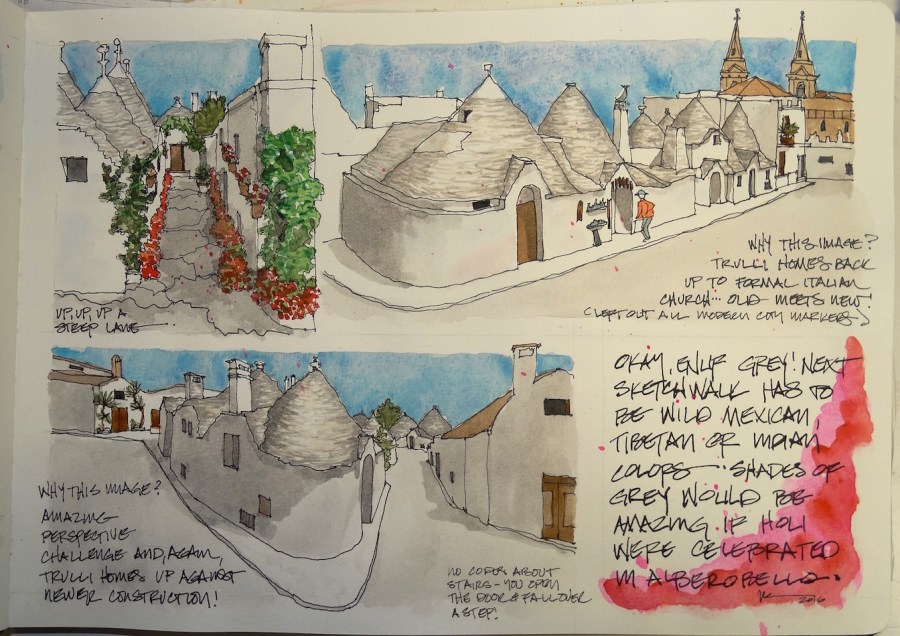 UP, UP, UP A
STEEP LANE
WHY THIS IMAGE?
TRULLI HOMES BACK
UP TO FORMAL ITALIAN
CHURCH... OLD MEETS NEW
(LEFT OUT ALL MODERN CITY MARKERS)
WHY THIS IMAGE?
AMAZING
PERSPECTIVE
CHALLENGE AND, AGAIN,
TRULLI HOMES UP AGAINST
NEWER CONSTRUCTION!
NO CODES ABOUT
STAIRS - YOU OPEN
THE DOOR & FALL OVER
A STEP!
OKAY, ENUF GREY! NEXT
SKETCHWALK HAS TO
BE WILD MEXICAN,
TIBETAN OR INDIAN
COLORS - SHADES OF
GREY WOULD BE
AMAZING IF HOLI
WERE CELEBRATED
IN ALBEROBELLO.
2016